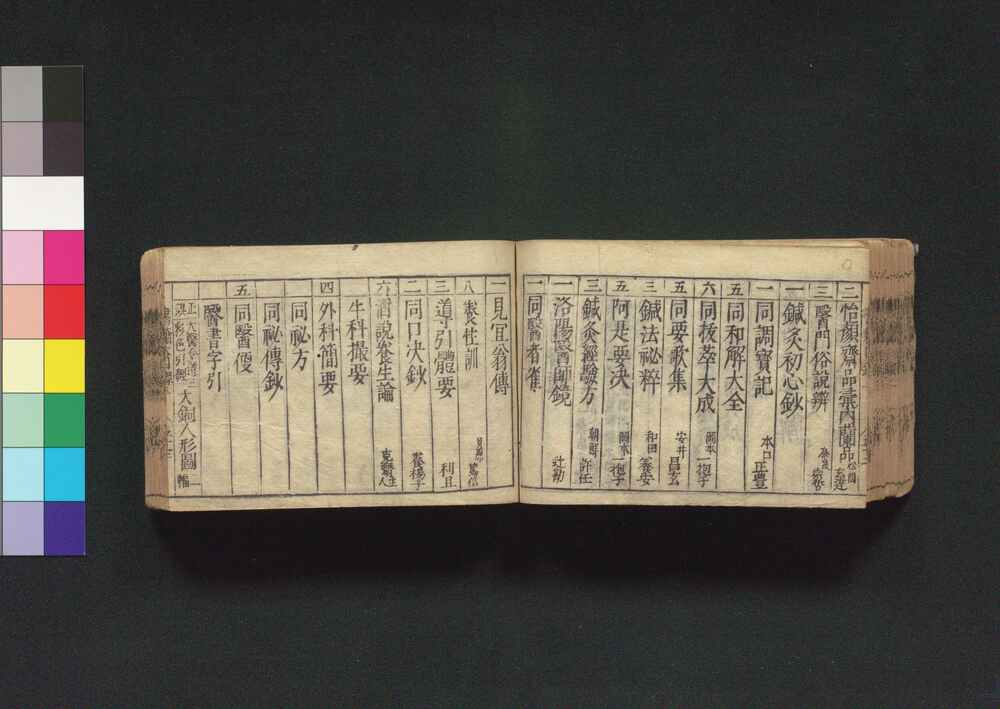 二 怡顔齋品 松岡玄達
三 醫門俗說辨
一 鍼灸初心鈔
一 同調寳記 本口正豊
五 同和解大全
六 同抜萃大成 岡本一抱子
五 同要歌集 安井昌玄
三 鍼法祕粹 和田養安
五 阿是要决 岡本一抱子
三 鍼灸經驗方 朝鮮許任
一 洛陽醫師鏡 辻勘
一 同醫者雀
一 見宜翁傳
八 養生訓 篤信
三 導引體要
二 同口决鈔 養楊子
六 通說養生論
牛科撮要
四 外科簡要
同祕方
同祕傳鈔
五 同醫便
醫書字引
大銅人形圖